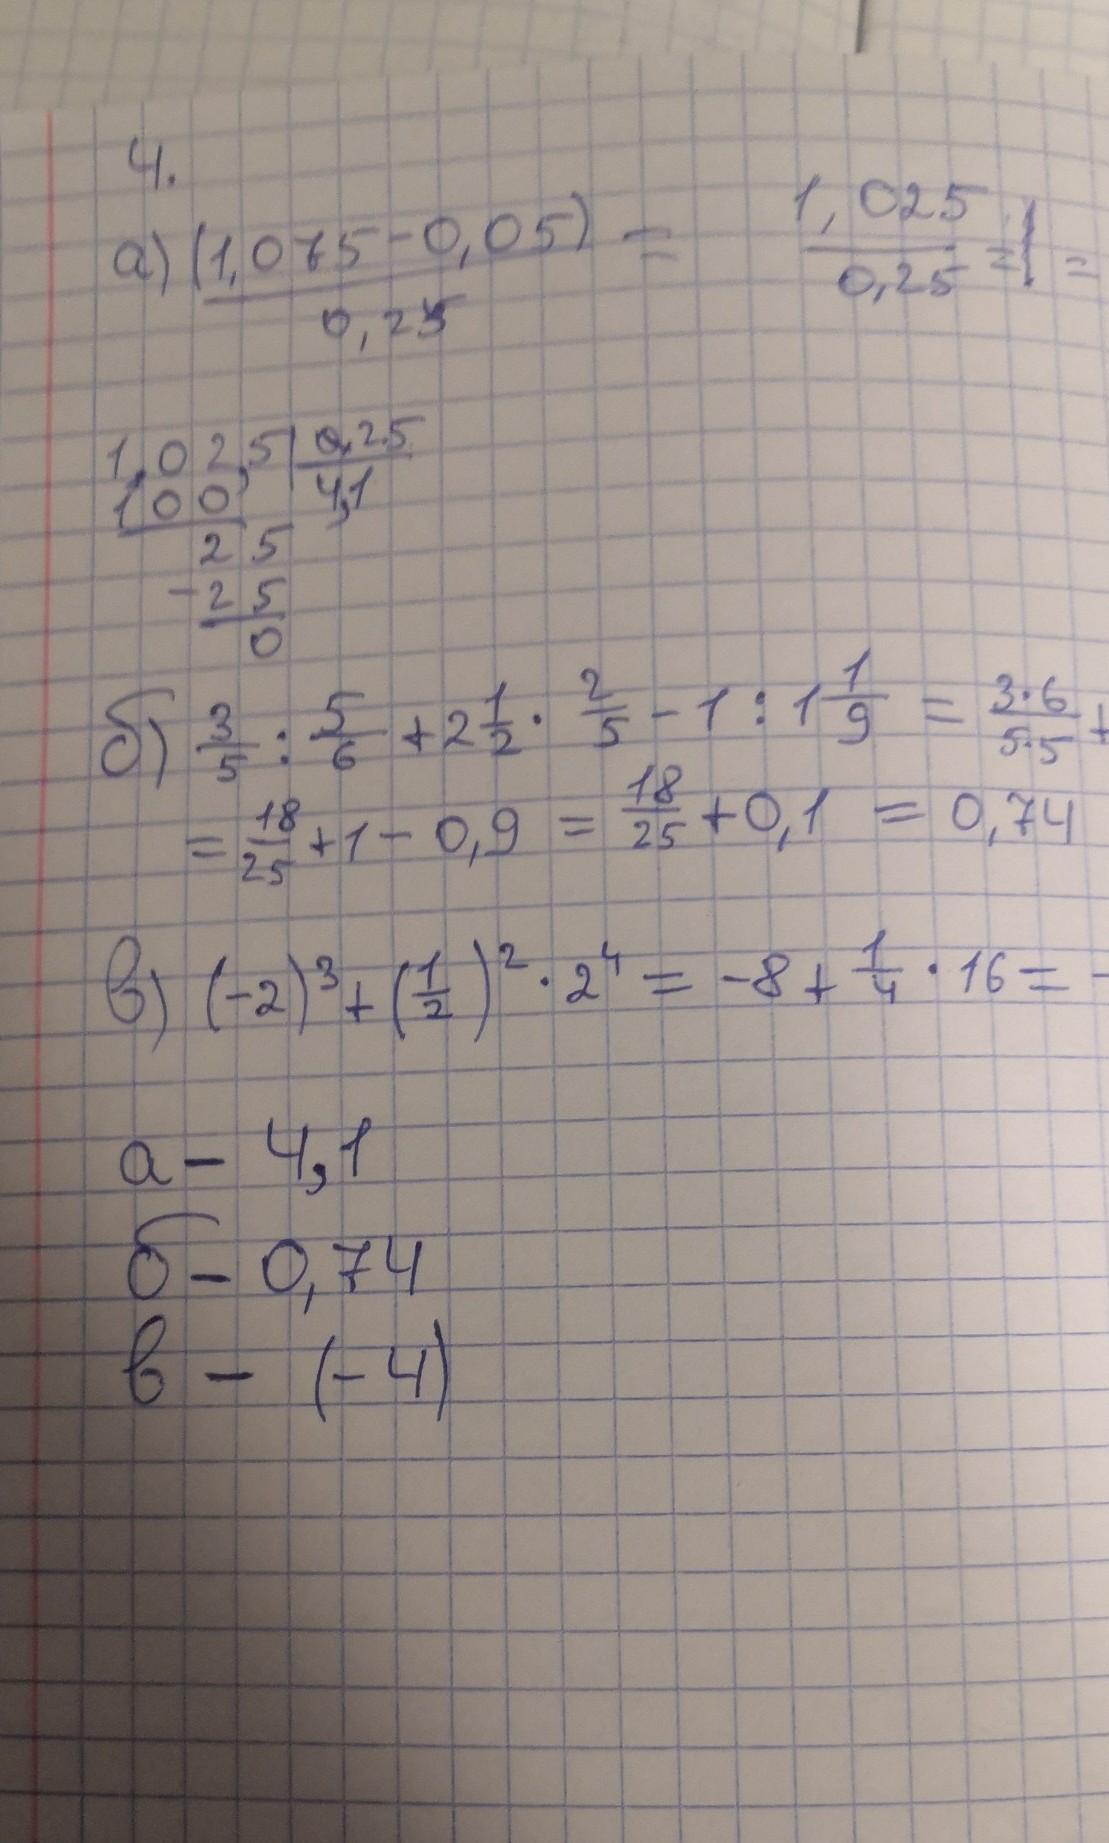 4.
а) (1,075 - 0,05) / 0,25 = 1,025 / 0,25 = =
1,025 | 0,25
100 | 4,1
25
- 25
0
б) 3/5 : 5/6 + 2 1/2 · 2/5 - 1 : 1 1/9 = 3·6/5·5 +
= 18/25 + 1 - 0,9 = 18/25 + 0,1 = 0,74
в) (-2)³ + (1/2)² · 2⁴ = -8 + 1/4 · 16 = -
а - 4,1
б - 0,74
в - (-4)